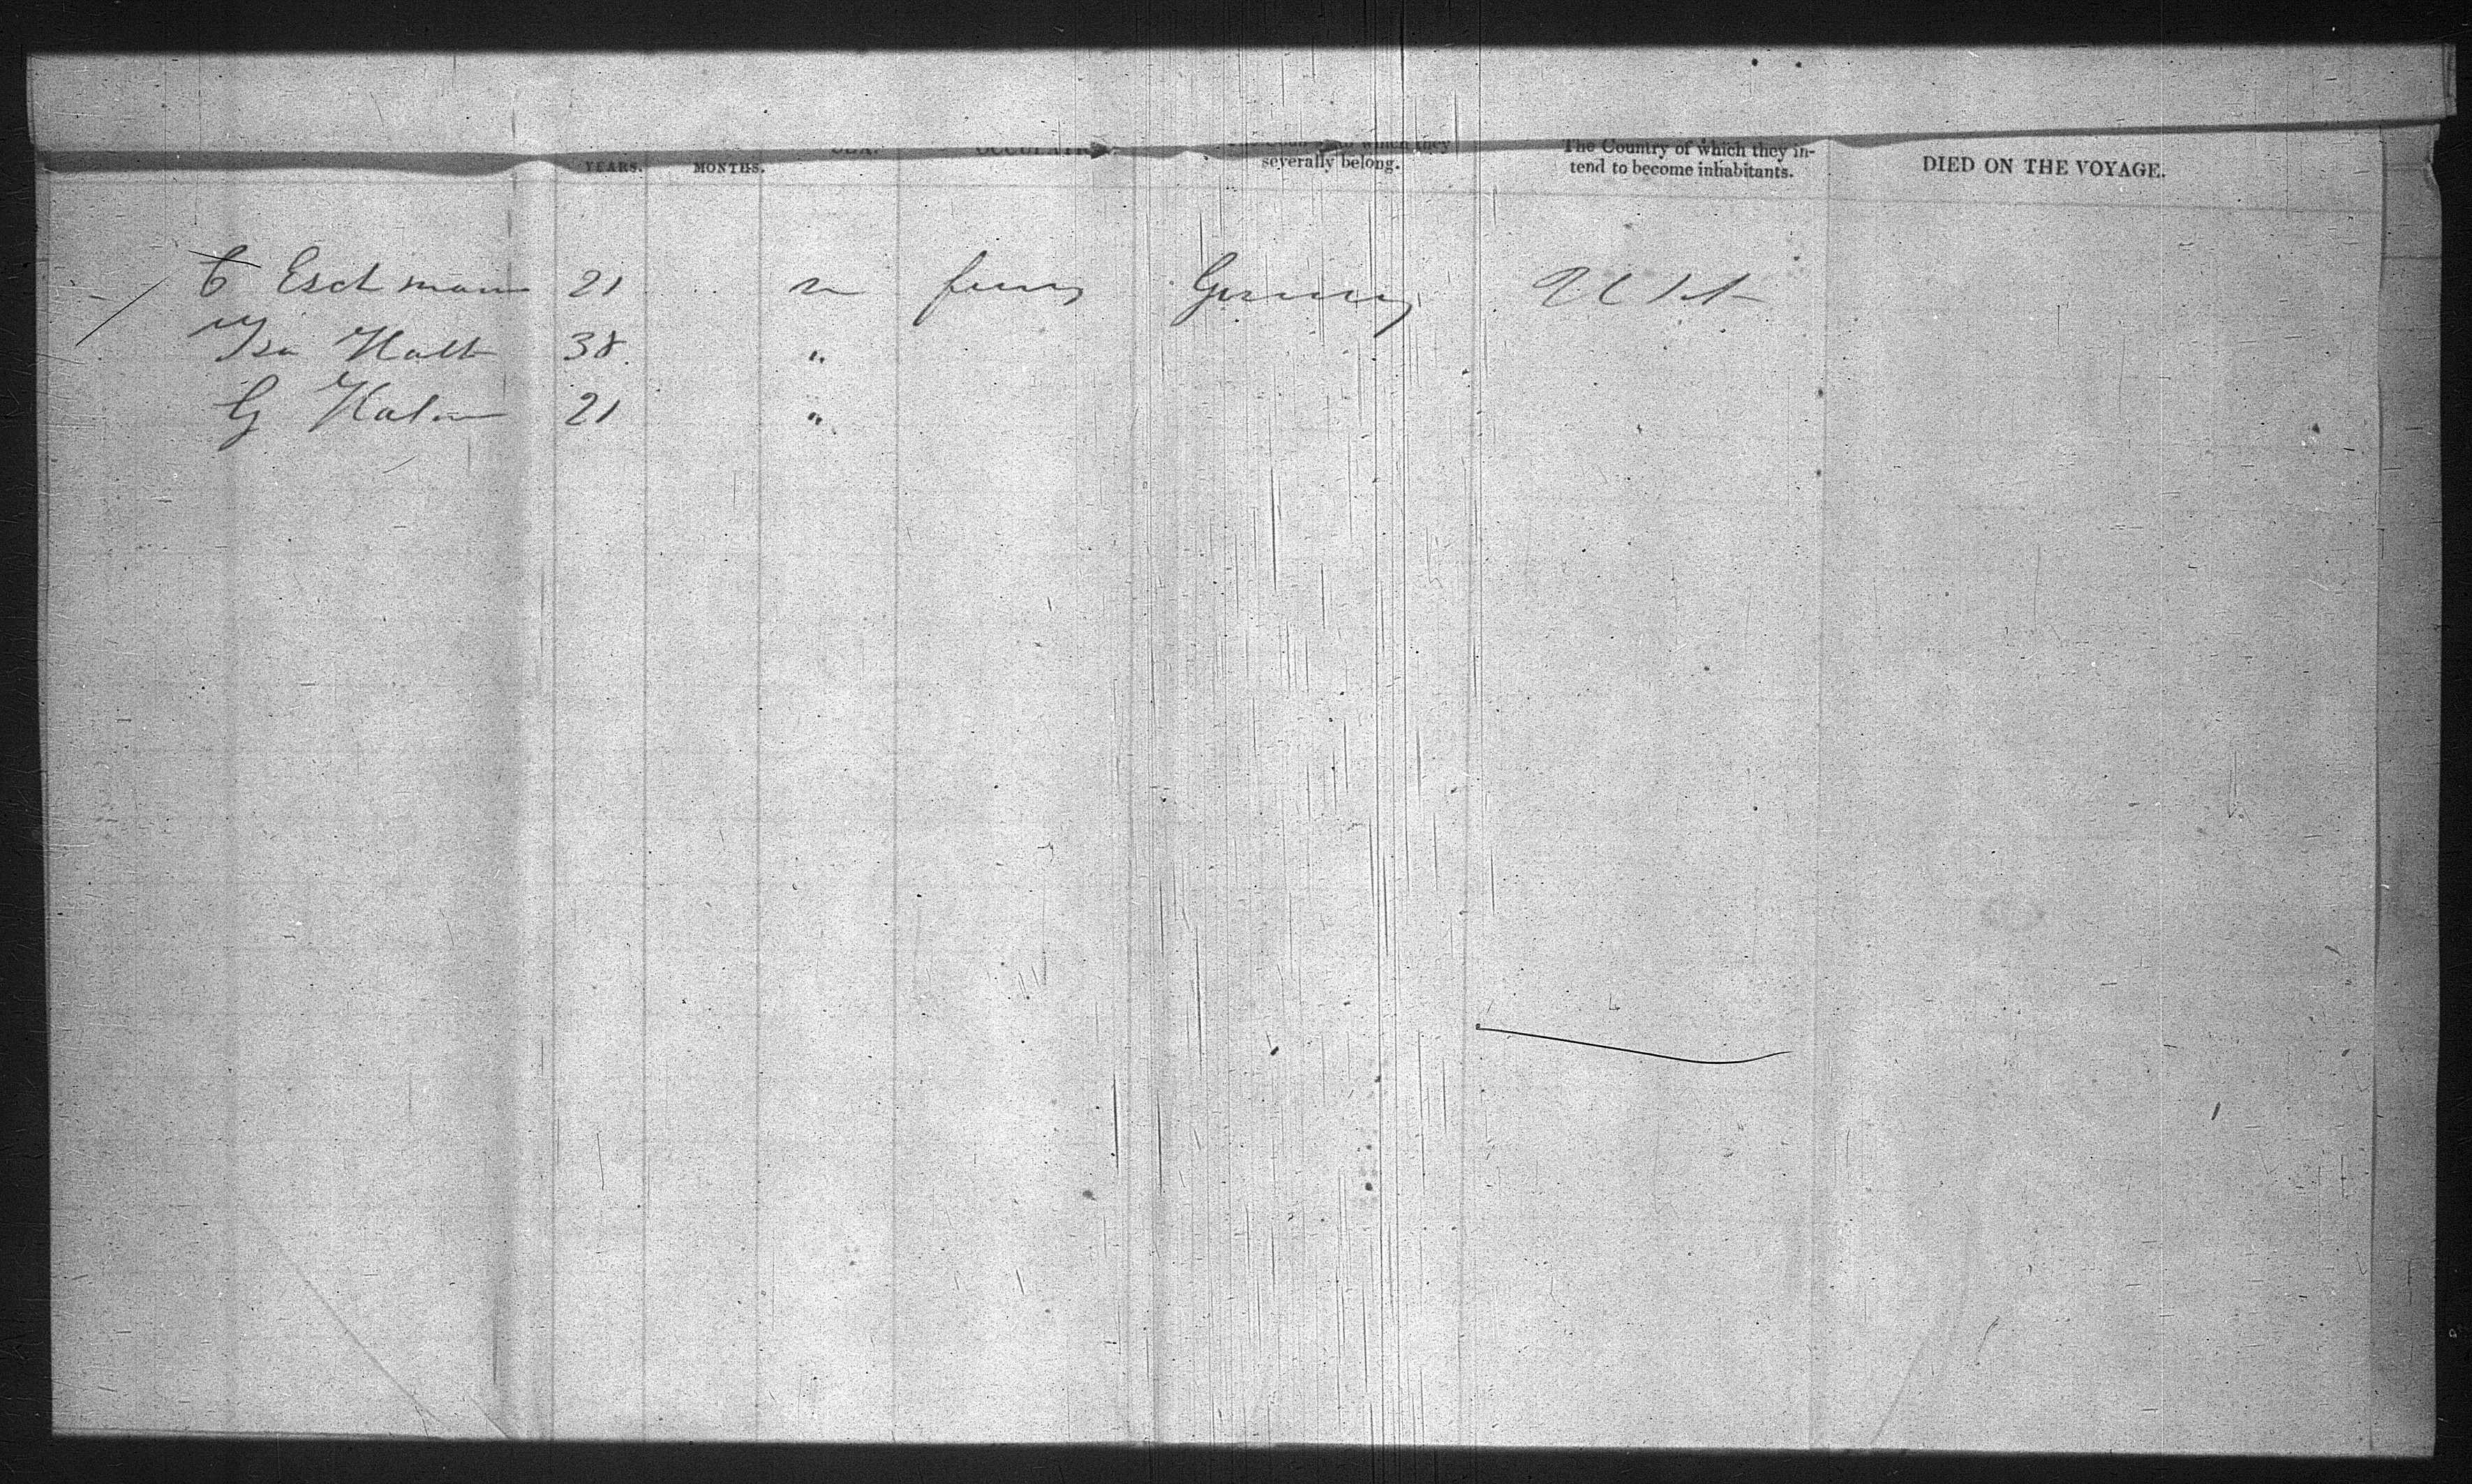 YEARS. MONTHS. SEX. OCCUPATION. which they severally belong. The Country of which they in- tend to become inhabitants. DIED ON THE VOYAGE.
C Eschmann 21 m Germany U St
Holt 38 "
G 21 "